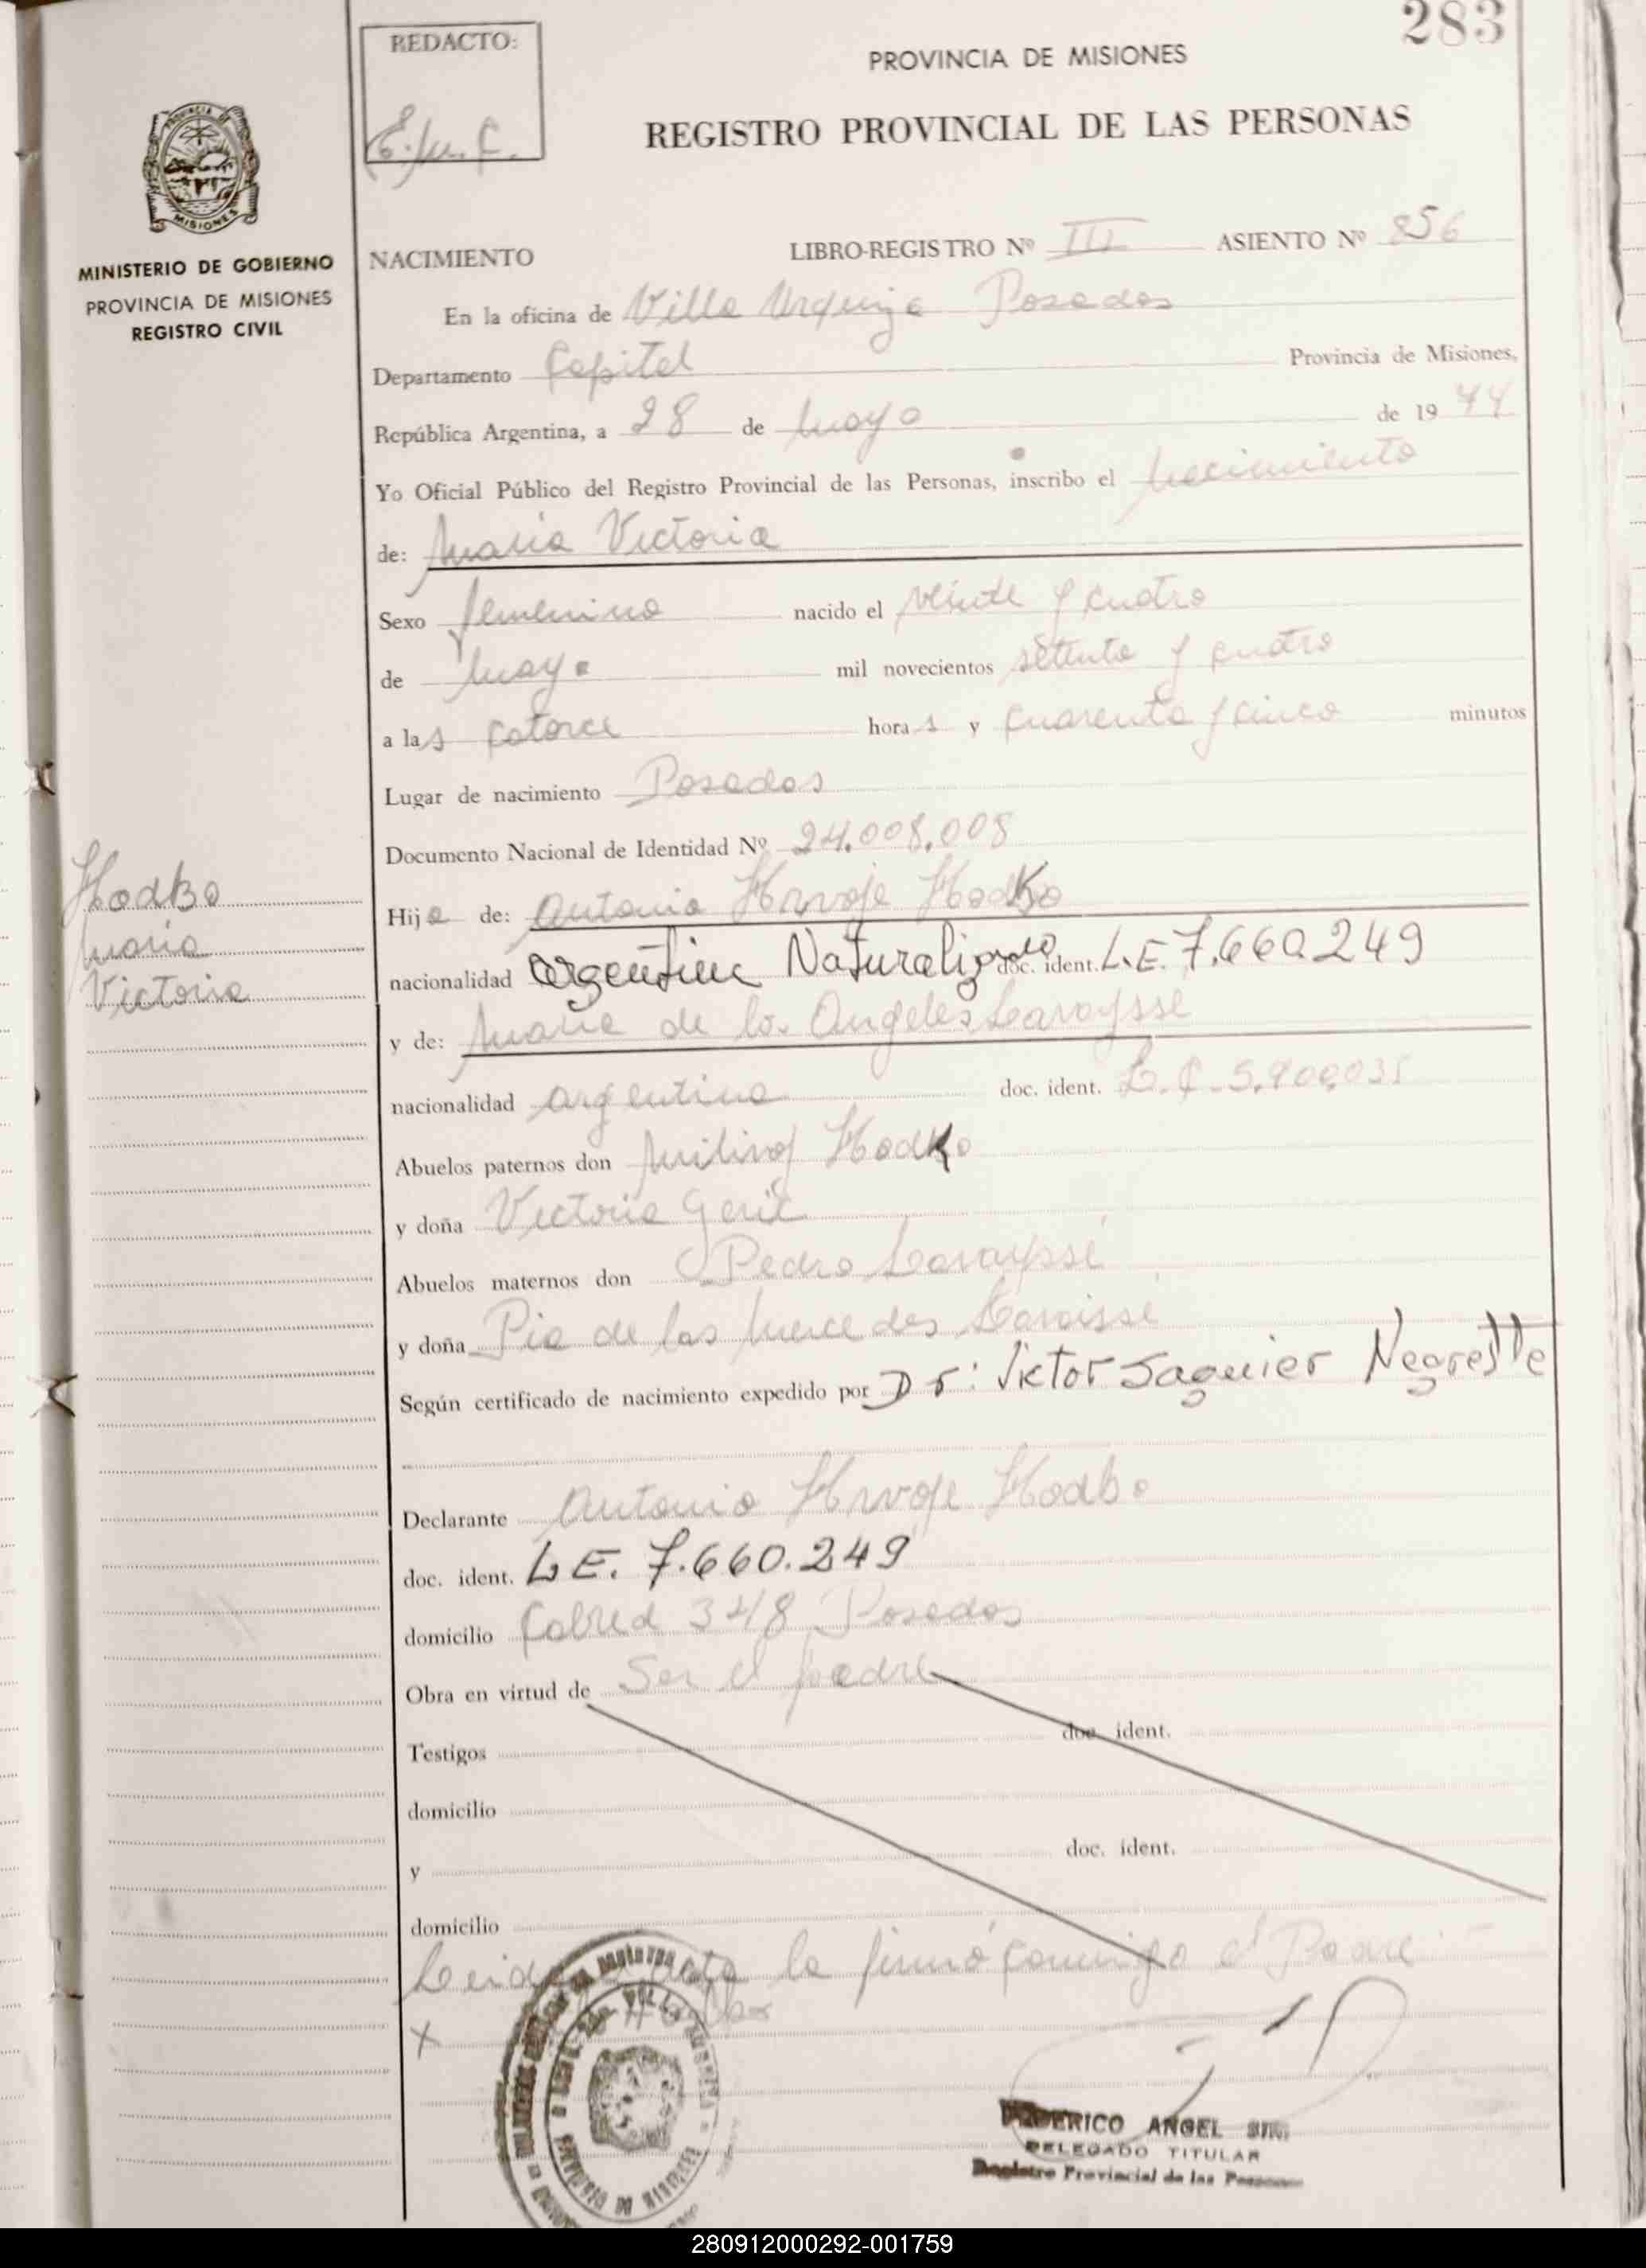 283
REDACTO:
PROVINCIA DE MISIONES
REGISTRO PROVINCIAL DE LAS PERSONAS
MISIONES
MINISTERIO DE GOBIERNO
PROVINCIA DE MISIONES
REGISTRO CIVIL
NACIMIENTO LIBRO-REGISTRO Nº III ASIENTO Nº 856
En la oficina de Villa Urquiza Posadas
Departamento Capital Provincia de Misiones,
República Argentina, a 28 de Mayo de 19 74
Yo Oficial Público del Registro Provincial de las Personas, inscribo el Nacimiento
de: María Victoria
Sexo femenino nacido el veinte y cuatro
de Mayo mil novecientos setenta y cuatro
a las catorce horas y cuarenta y cinco minutos
Lugar de nacimiento Posadas
Documento Nacional de Identidad Nº 24.008.008
Hodko
María
Victoria
Hija de: Antonio Hrvoje Hodko
nacionalidad argentino Naturalizado doc. ident. L.E. 7.660.249
y de: María de los Angeles Laraysse
nacionalidad argentina doc. ident. L.C. 5.900.035
Abuelos paternos don Hodko
y doña Victoria
Abuelos maternos don Pedro Laraysse
y doña Pia de las Mercedes
Según certificado de nacimiento expedido por Dr: Victor Saguier Negrette
Declarante Antonio Hrvoje Hodko
doc. ident. L.E. 7.660.249
domicilio Cabred 348 Posadas
Obra en virtud de Ser el padre
Testigos doc. ident.
domicilio
y doc. ident.
domicilio
Leida acta la firmó conmigo el Padre
X
ANGEL
DELEGADO TITULAR
Registro Provincial de las Personas
280912000292-001759